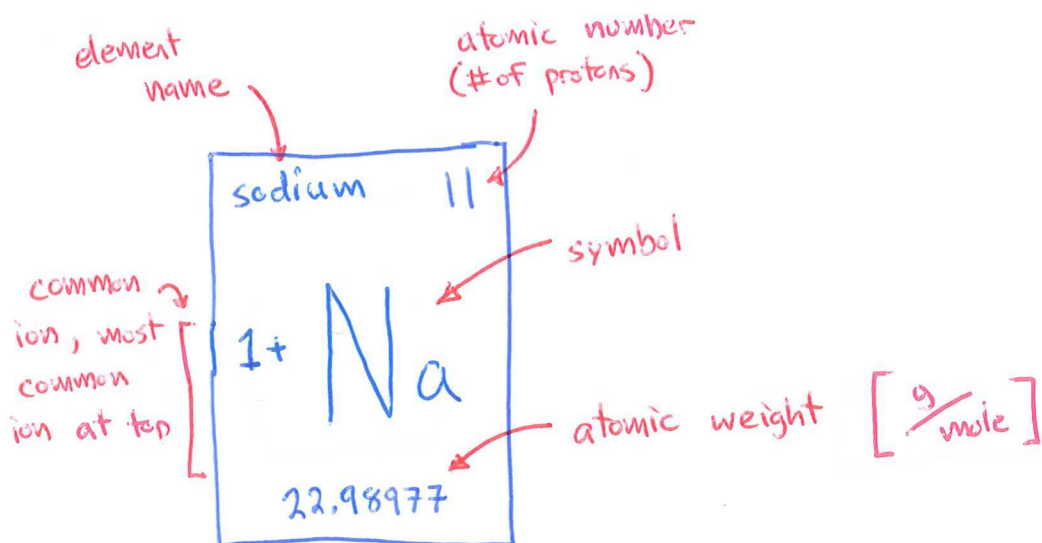 element
name
atomic number
(# of protons)
sodium 11
symbol
common
ion, most
common
ion at top
1+ Na
atomic weight [g/mole]
22.98977